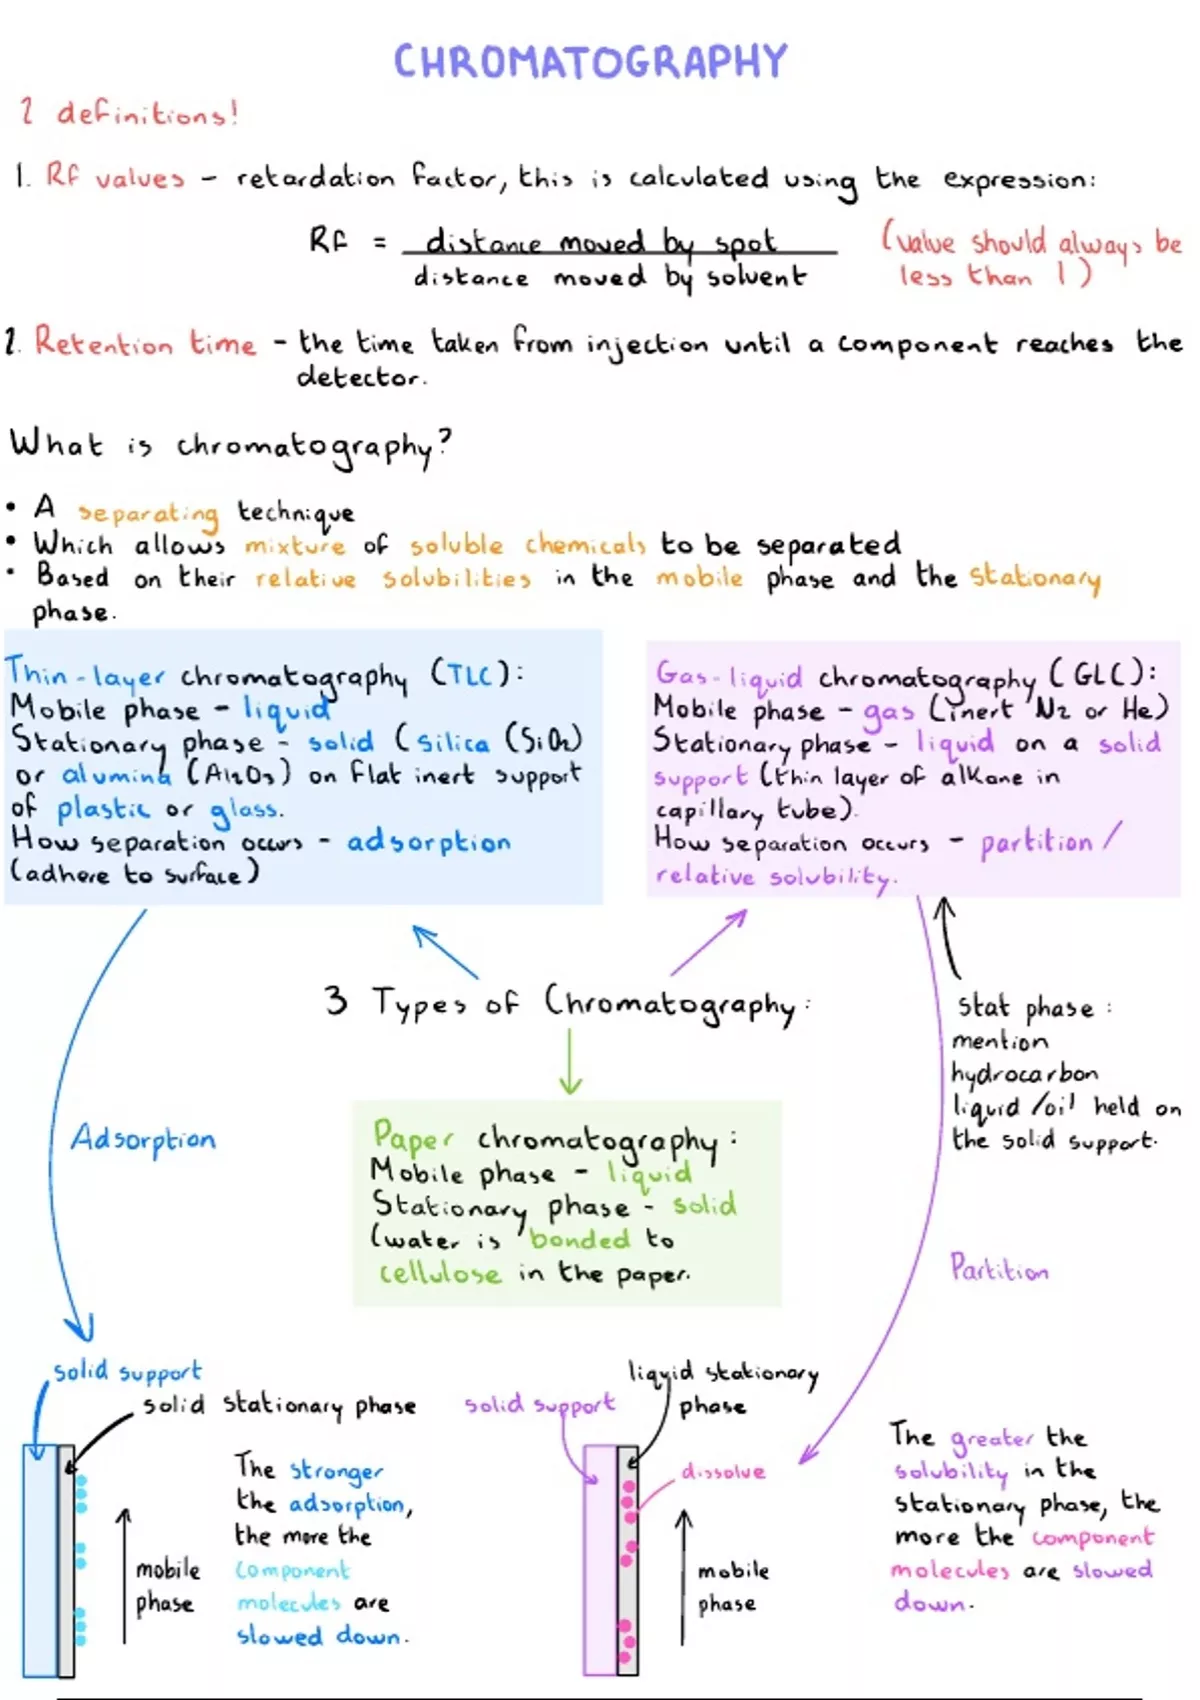 CHROMATOGRAPHY
2 definitions!
1. Rf values - retardation factor, this is calculated using the expression:
Rf = distance moved by spot
distance moved by solvent
(value should always be
less than 1)
2. Retention time - the time taken from injection until a component reaches the
detector.
What is chromatography?
• A separating technique
• Which allows mixture of soluble chemicals to be separated
• Based on their relative solubilities in the mobile phase and the stationary
phase.
Thin-layer chromatography (TLC):
Mobile phase - liquid
Stationary phase - solid (silica (SiO2)
or alumina (Al2O3) on flat inert support
of plastic or glass.
How separation occurs - adsorption
(adhere to surface)
Gas-liquid chromatography (GLC):
Mobile phase - gas (inert N2 or He)
Stationary phase - liquid on a solid
support (thin layer of alkane in
capillary tube).
How separation occurs - partition/
relative solubility.
3 Types of Chromatography:
Stat phase:
mention
hydrocarbon
liquid/oil held on
the solid support.
Adsorption
Paper chromatography:
Mobile phase - liquid
Stationary phase - solid
(water is bonded to
cellulose in the paper.
Partition
solid support
solid stationary phase
The stronger
the adsorption,
the more the
component
molecules are
slowed down.
mobile
phase
liquid stationary
phase
solid support
dissolve
mobile
phase
The greater the
solubility in the
stationary phase, the
more the component
molecules are slowed
down.